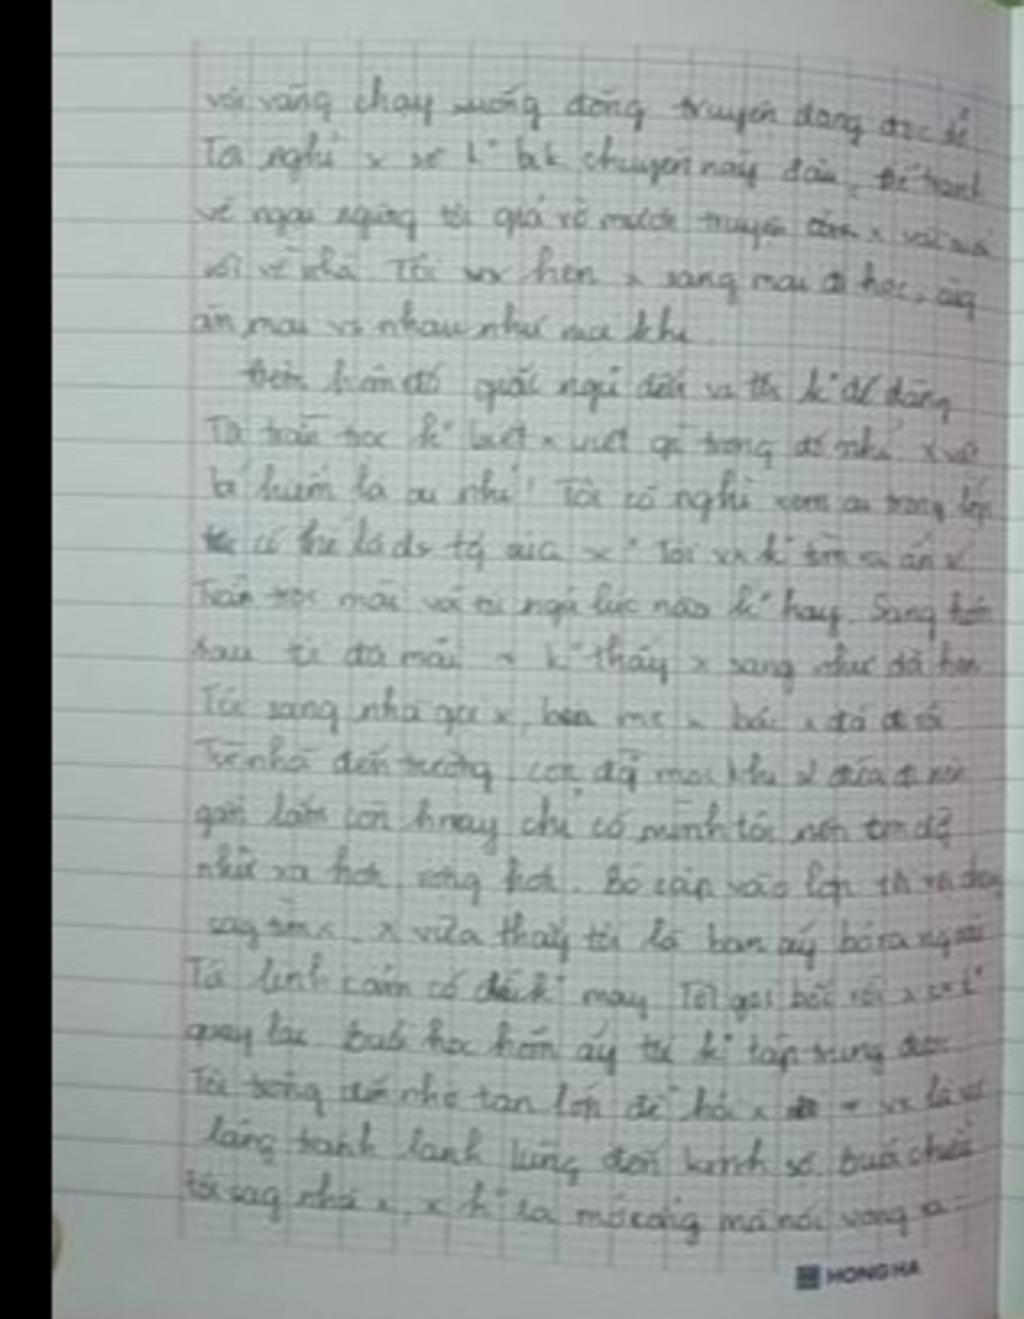 vội vàng chạy xuống đống truyện đang đọc dở
Tôi nghĩ x sẽ k° biết chuyện này đâu. Để tránh
vẻ ngại ngùng tôi giả vờ mượn truyện x
rồi về nhà Tôi vx hẹn x sang mai đi học, cùng
ăn mai vs nhau như mọi khi
đêm hôm đó giấc ngủ đến k° dễ dàng
Tôi trằn trọc k° biết x viết gì trong đó nhỉ x vẽ
bí hiểm là ai nhỉ? Tôi cố nghĩ xem ai trong lớp
có thể là đs tg của x? Tôi vx k° tìm ra ẩn ý
Trằn trọc mãi ngủ lúc nào k° hay. Sáng hôm
sau đợi mãi k° thấy x sang như đã hẹn
Tôi sang nhà gọi x, mẹ x bảo x đã đi rồi
Từ nhà đến trường, con đg mọi khi 2 đứa đi nên
gần lắm còn hnay chỉ có mình tôi nên con đg
như xa hơn rộng hơn. Bỏ cặp vào lớp
sag tìm x. x vừa thấy tôi là bạn ấy bỏ ra ngoài
Tôi linh cảm có k° may Tôi gọi x k°
quay lại Buổi học hôm ấy tôi k° tập trung được
Tôi trống tan lớp để hỏi x
lảng tránh lạnh lùng đến Buổi chiều
tôi sag nhà x, x k° ra mở cổng mà nói vọng ra:
HONG HA